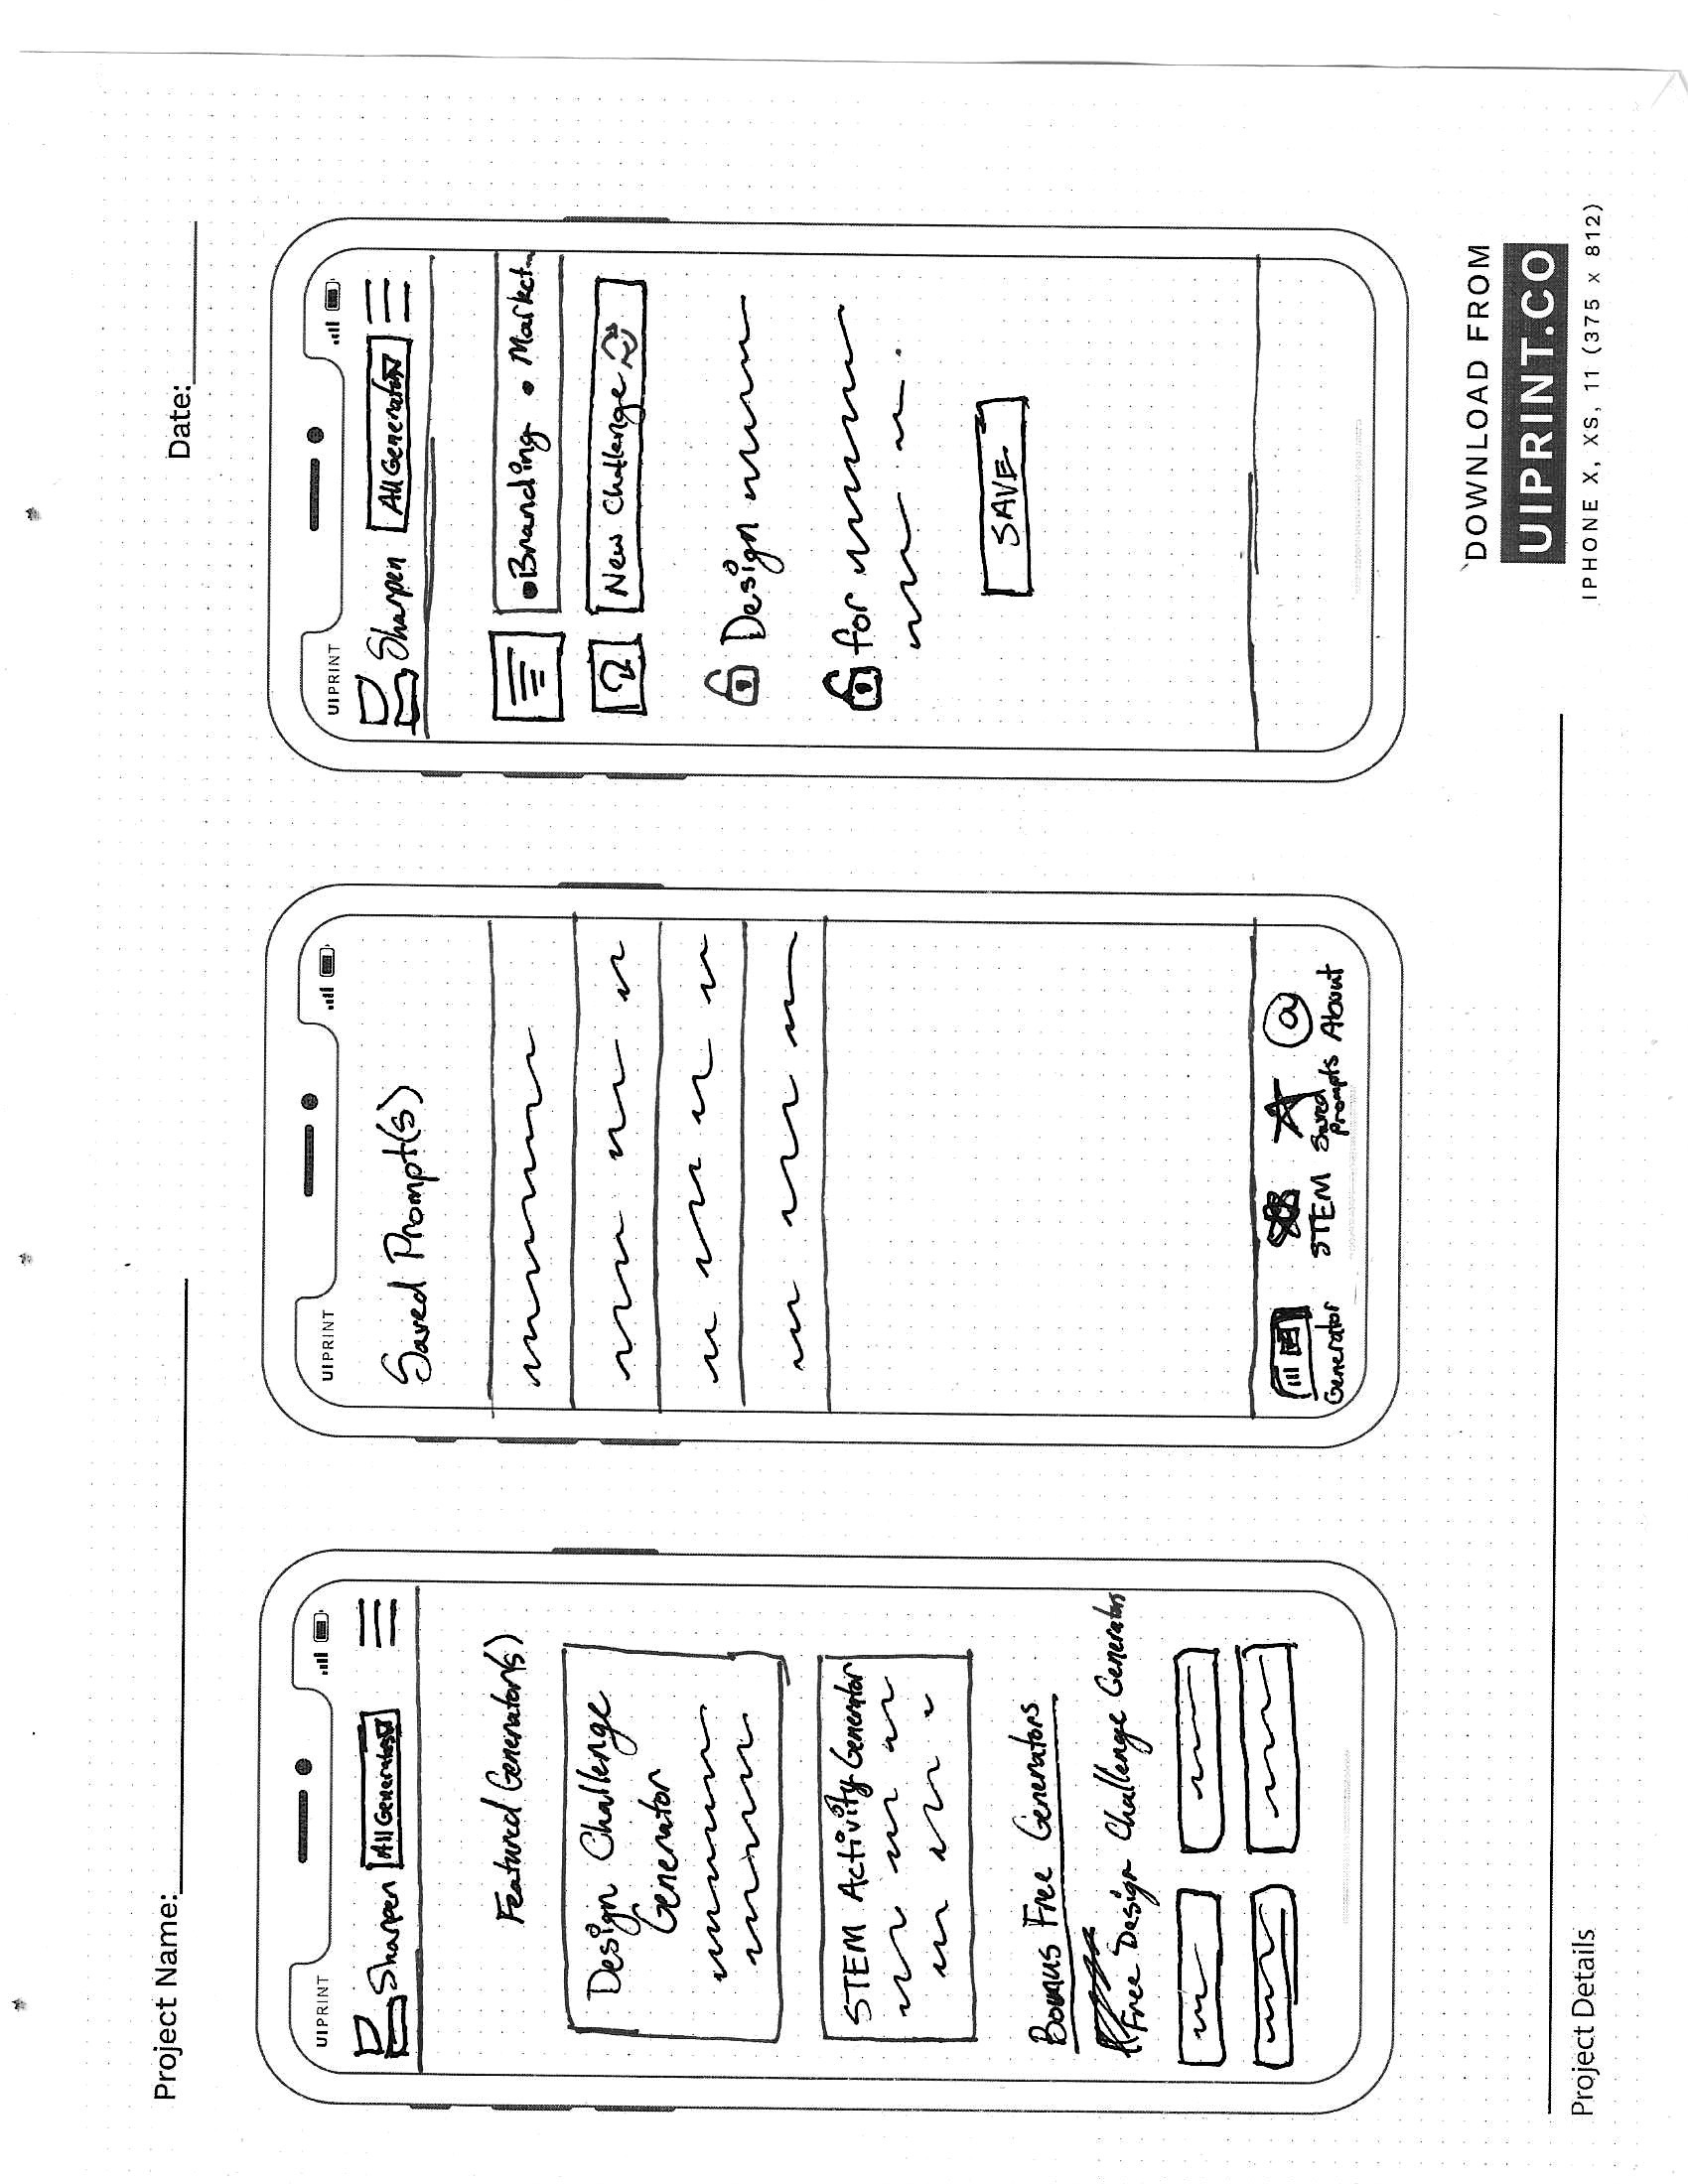 Project Name:
Date:
UIPRINT
Sharpen
All Generators
Featured Generator(s)
Design Challenge
Generator
STEM Activity Generator
Bonus Free Generators
Free Design Challenge Generators
UIPRINT
Saved Prompt(s)
Generator
STEM
Saved
Prompts
@
About
UIPRINT
Sharpen
All Generators
•Branding • Market...
New Challenge
Design
for
SAVE
DOWNLOAD FROM
UIPRINT.CO
IPHONE X, XS, 11 (375 x 812)
Project Details